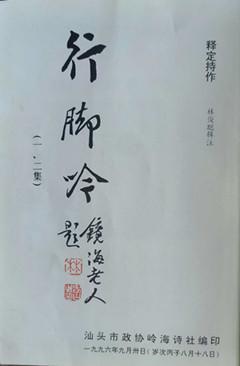 释定持作
林俊聪释注
行脚吟
(一、二集)
镜海老人
题
汕头市政协岭海诗社编印
一九九六年九月卅日(岁次丙子八月十八日)